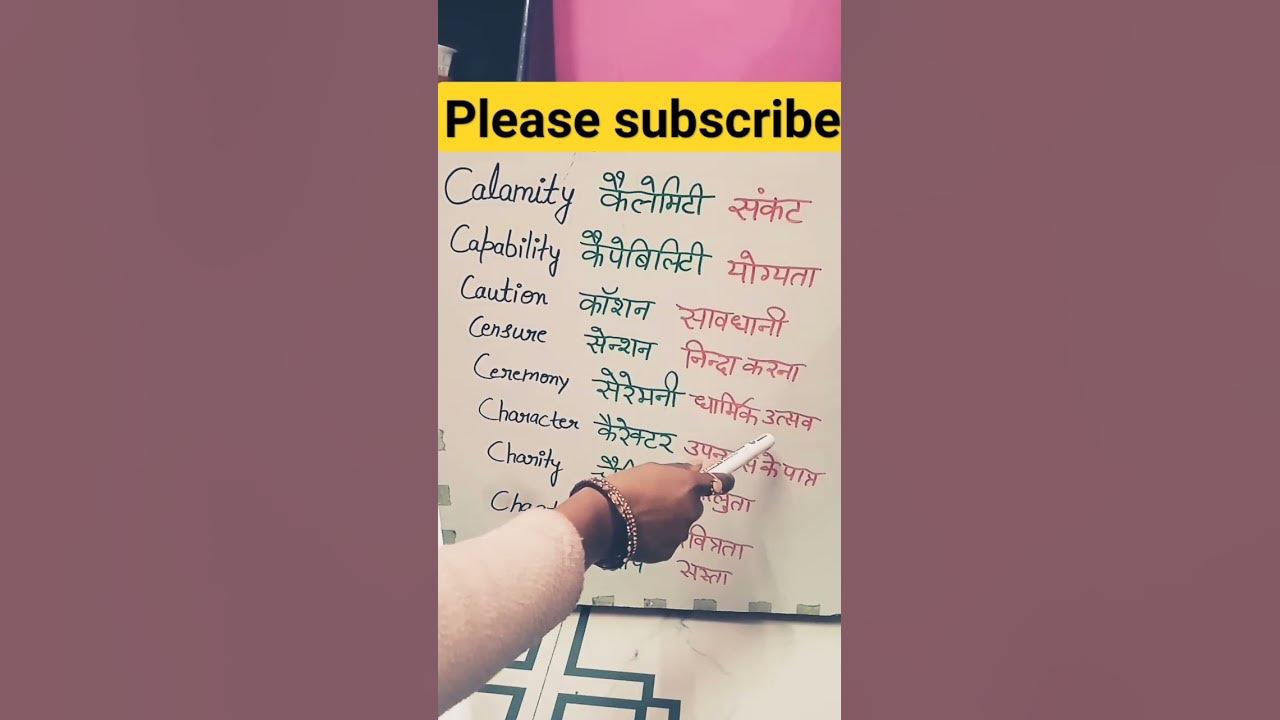 Please subscribe
Calamity कैलेमिटी संकट
Capability कैपेबिलिटी योग्यता
Caution कॉशन सावधानी
Censure सेन्शन निन्दा करना
Ceremony सेरेमनी धार्मिक उत्सव
Character कैरेक्टर के पात्र
Charity
सस्ता